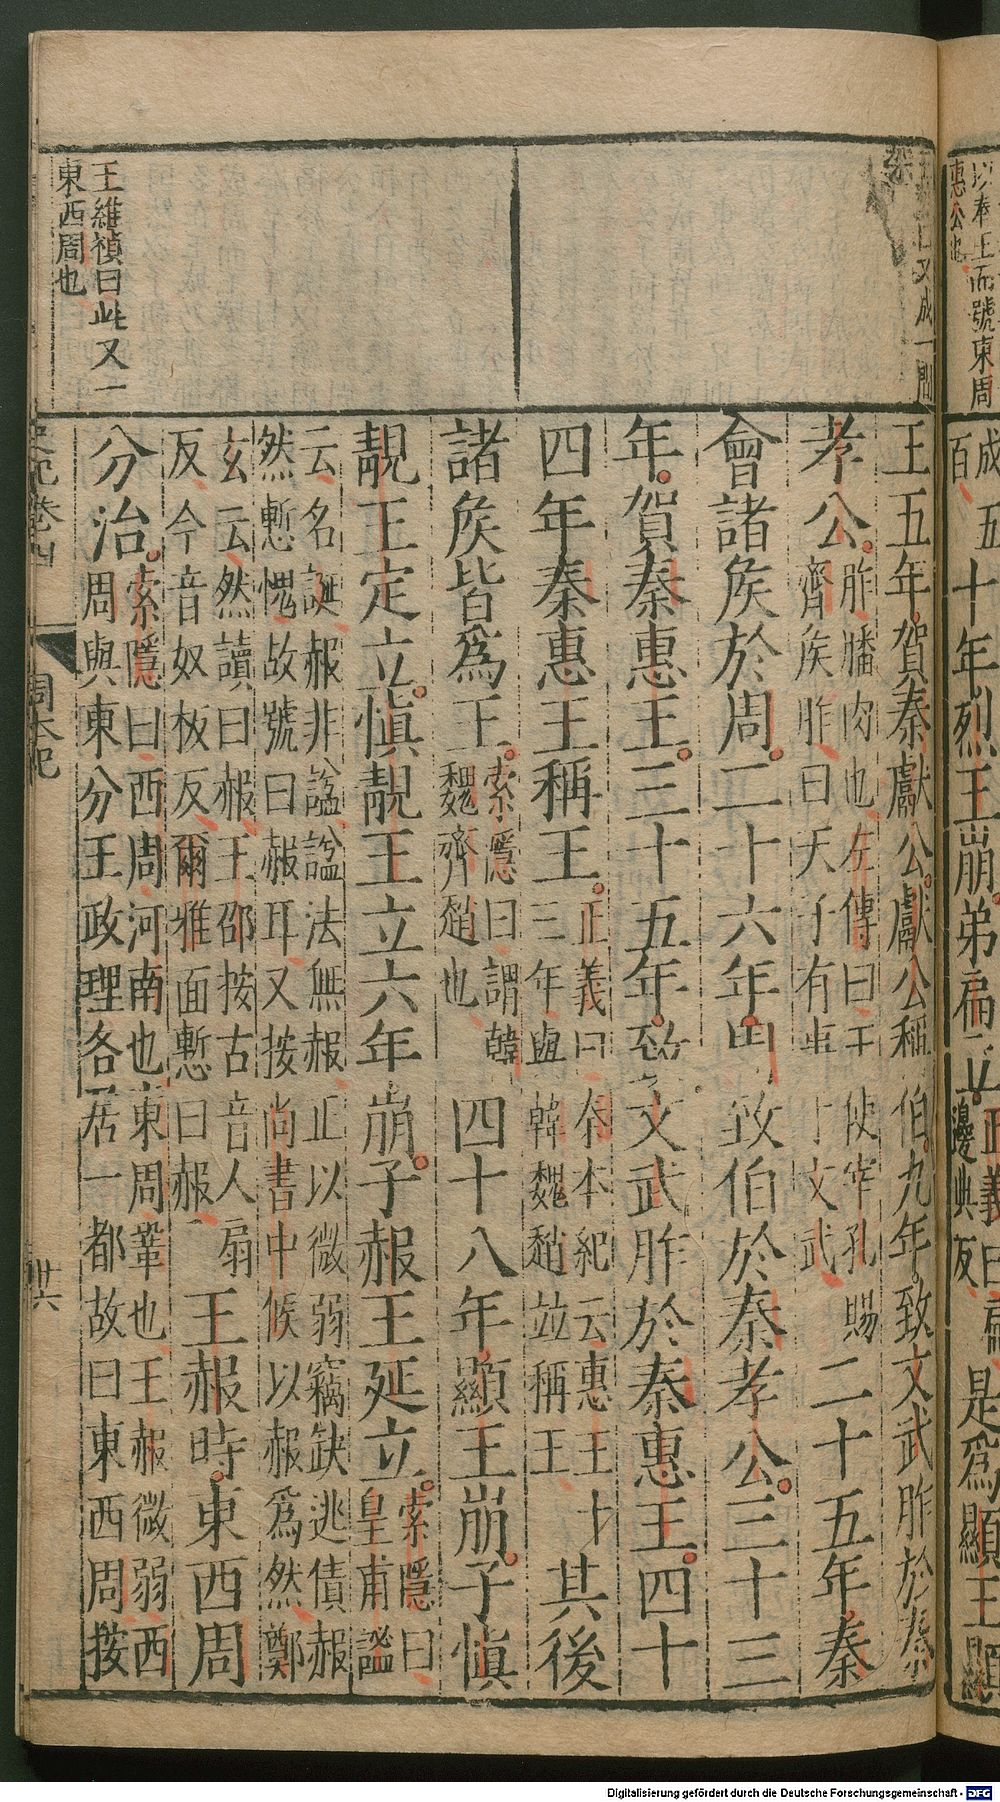 以奉王而號東周
惠公也
五十年烈王崩弟扁立
正義曰扁
邊典反
是爲顯王
又成一關
王五年賀秦獻公獻公稱伯九年致文武胙於秦
孝公
胙膰肉也左傳曰王使宰孔賜
齊侯胙曰天子有事于文武
二十五年秦
會諸侯於周二十六年周致伯於秦孝公三十三
年賀秦惠王三十五年致文武胙於秦惠王四十
四年秦惠王稱王
正義曰秦本紀云惠王十
三年與韓魏趙並稱王
其後
諸侯皆爲王
索隱曰謂韓
魏齊趙也
四十八年顯王崩子慎
靚王定立慎靚王立六年崩子赧王延立
索隱曰
皇甫謐
云名誕赧非謚謚法無赧正以微弱竊鈌逃債赧
然慙愧故號曰赧耳又按尚書中候以赧爲然鄭
玄云然讀曰赧王邵按古音人扇
反今音奴板反爾雅面慙曰赧
王赧時東西周
分治
索隱曰西周河南也東周鞏也王赧微弱西
周與東分王政理各居一都故曰東西周按
王維禎曰此又一
東西周也
史記卷四
周本紀
廿六
Digitalisierung gefördert durch die Deutsche Forschungsgemeinschaft - DFG